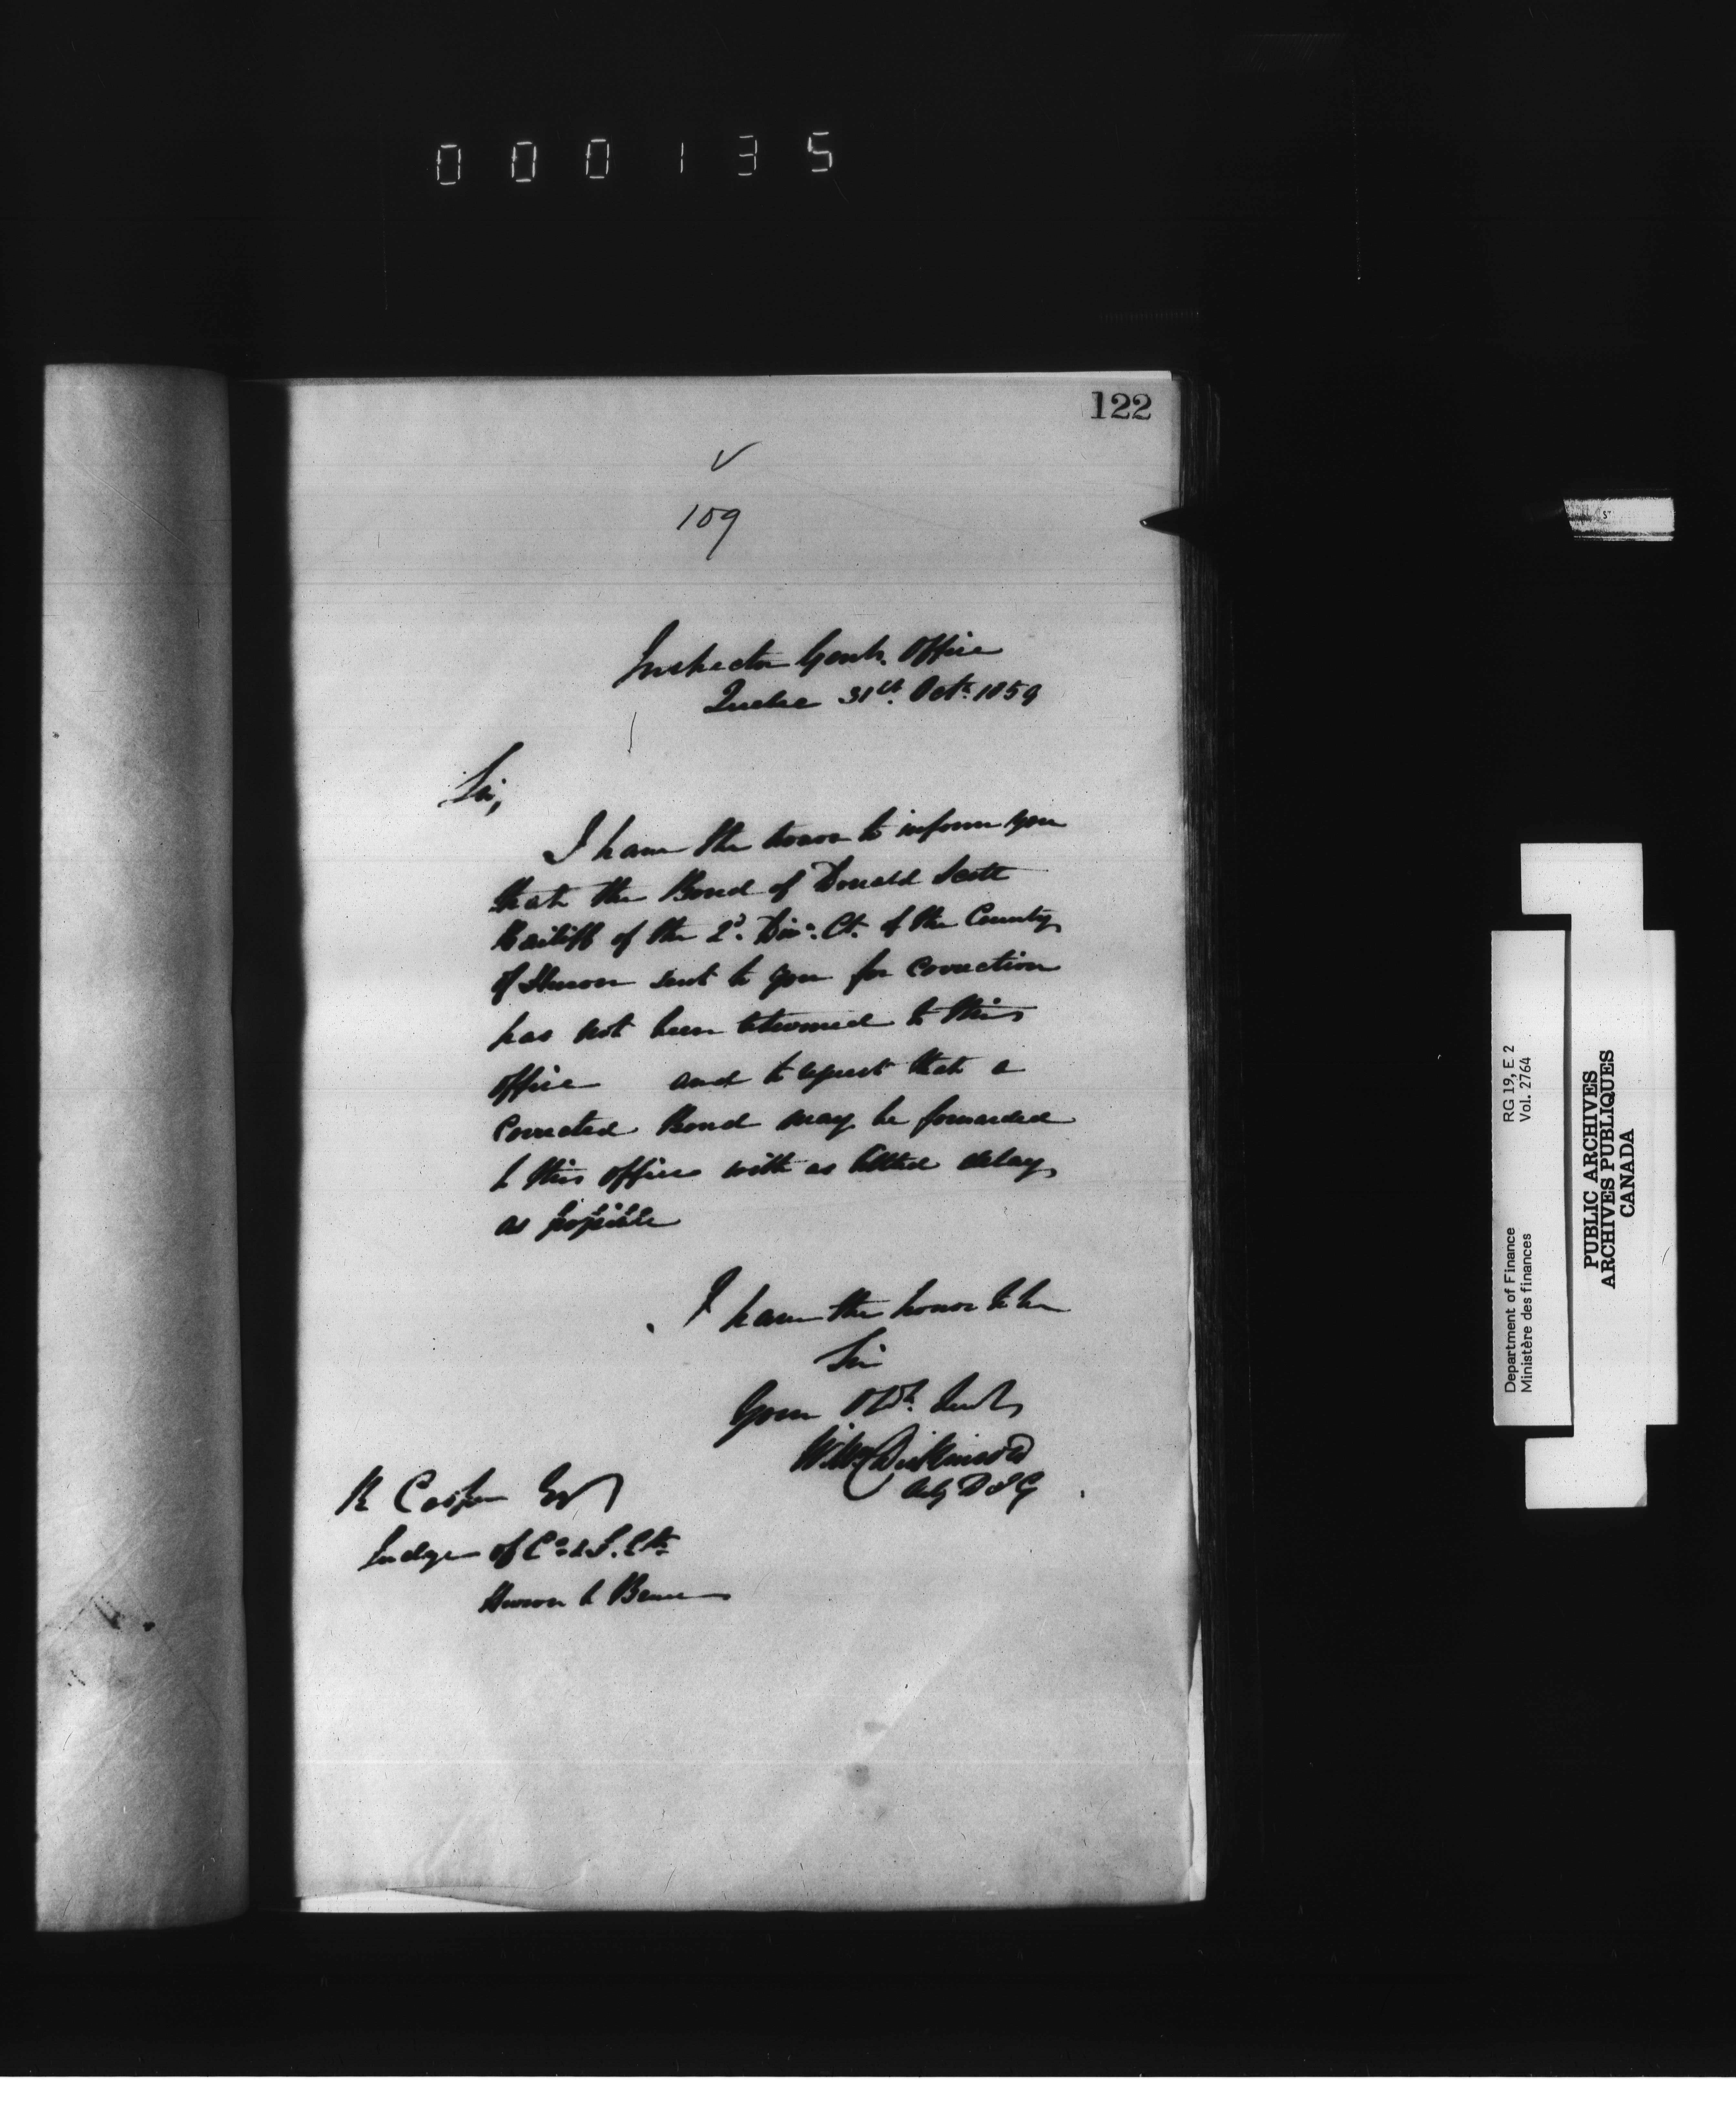 000135
122
109
Inspector Genls. Office
Quebec 31st. Octr. 1859
Sir,
I have the honor to inform you
that the Bond of Donald Scott
Bailiff of the 2d. Divn. Ct. of the County
of Huron sent to you for correction
has not been returned to this
office and to request that a
corrected Bond may be forwarded
to this office with as little delay
as possible
I have the honor to be
Sir
Your Obt. Servt
Wm Dickinson
Actg D I G
R Cooper Esq
Judge of Co & S. Cts
Huron & Bruce
RG 19, E 2
Vol. 2764
Department of Finance
Ministère des finances
PUBLIC ARCHIVES
ARCHIVES PUBLIQUES
CANADA